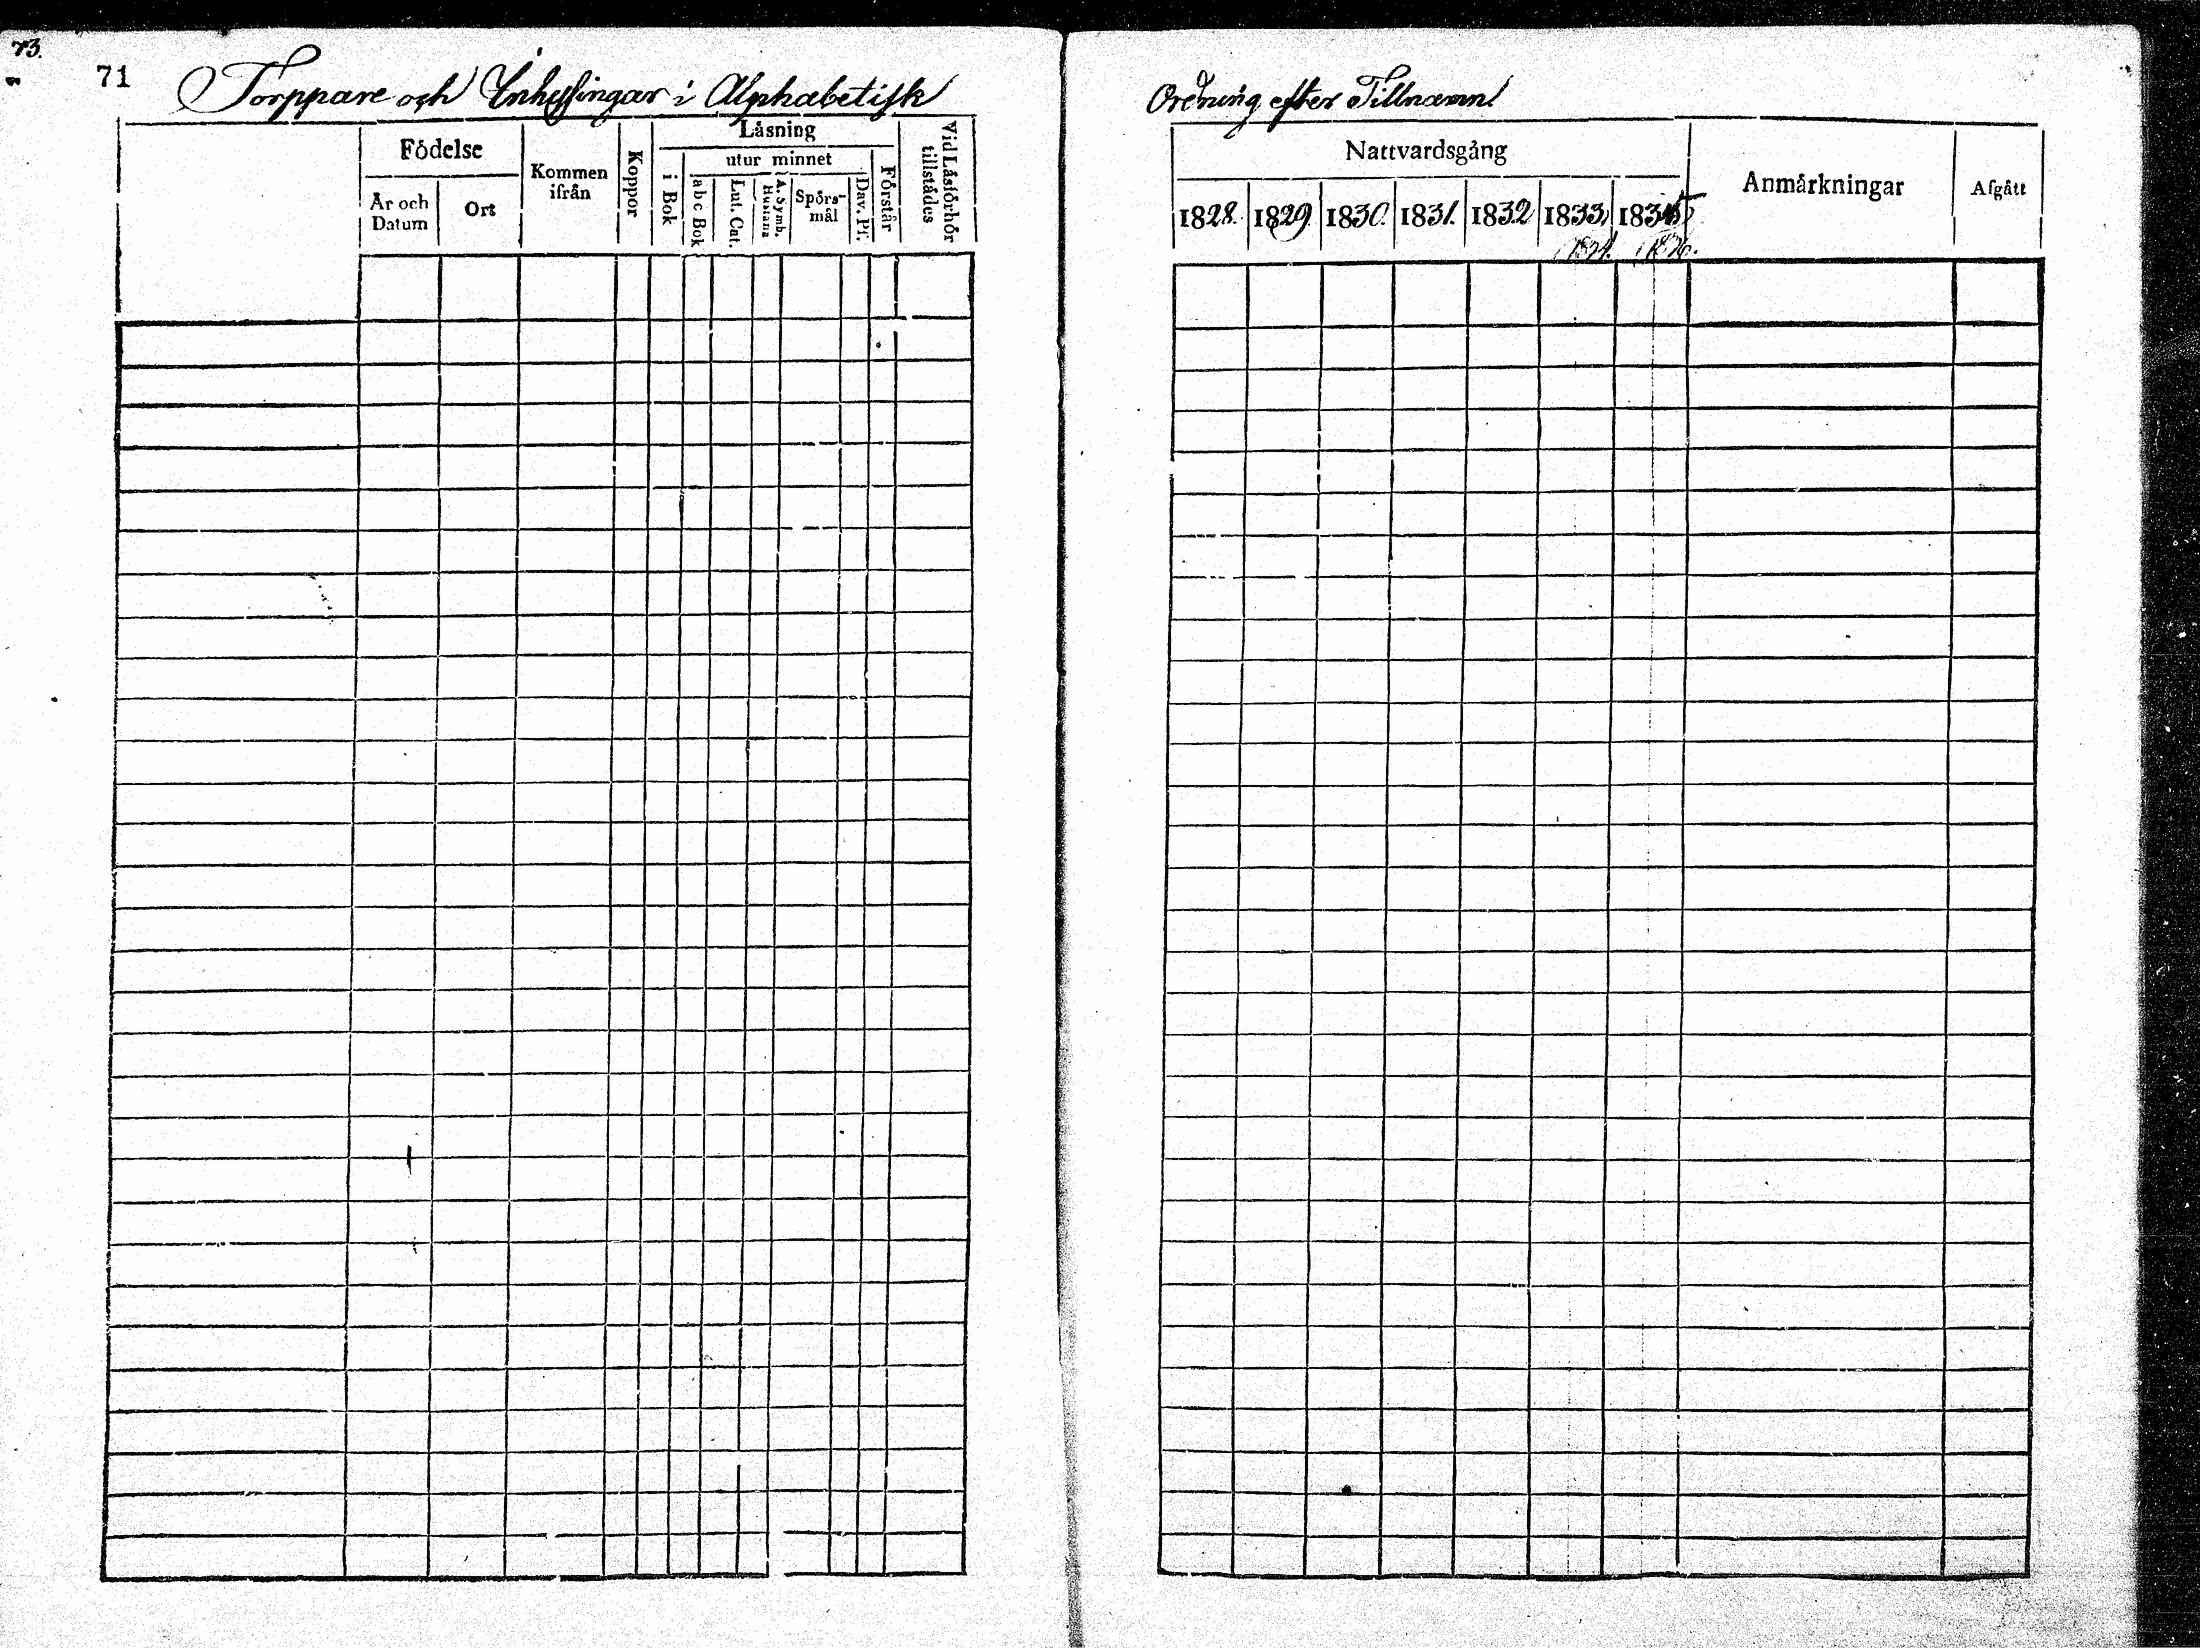 73.
71
Torppare och Inhyssingar i Alphabetisk
Ordning efter Tillnamn
Födelse
År och Datum
Ort
Kommen ifrån
Koppor
Låsning
i Bok
utur minnet
abc Bok
Lut. Cat.
A. Symb. Hustafla
Spörs-mål
Dav. Pf.
Förstår
Vid Låsförhör tillstådes
Nattvardsgång
1828.
1829
1830.
1831.
1832
1833,
1834.
1835
1836.
Anmårkningar
Afgått